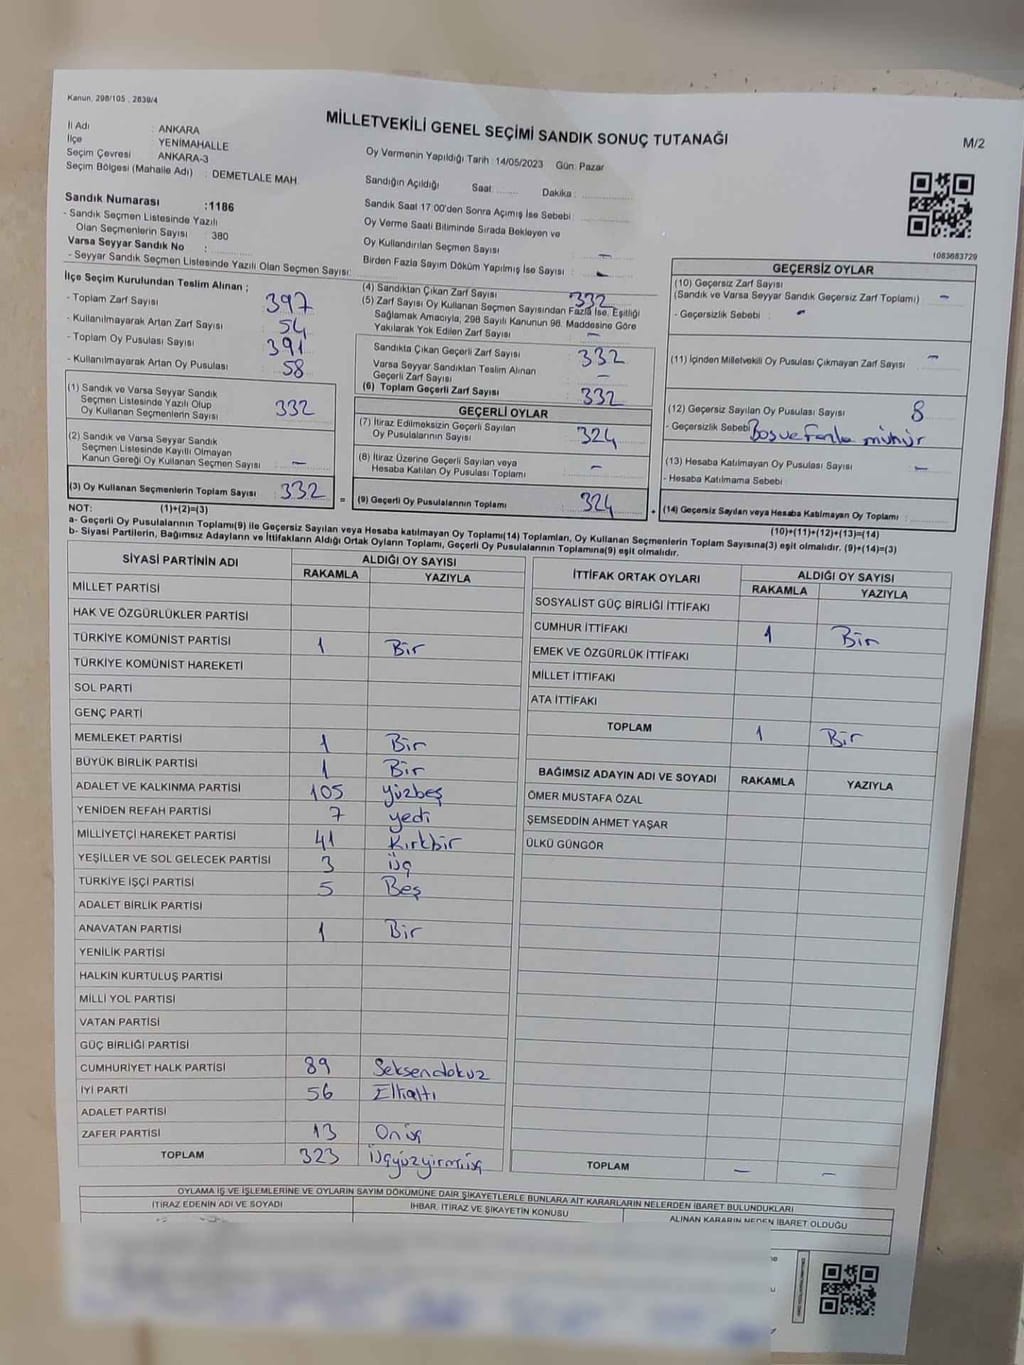 Kanun, 298/105 , 2839/4
MİLLETVEKİLİ GENEL SEÇİMİ SANDIK SONUÇ TUTANAĞI
M/2
İl Adı : ANKARA
İlçe : YENİMAHALLE
Seçim Çevresi : ANKARA-3
Seçim Bölgesi (Mahalle Adı) : DEMETLALE MAH.
Oy Vermenin Yapıldığı Tarih : 14/05/2023 Gün: Pazar
Sandığın Açıldığı Saat: ....... Dakika : ............
Sandık Saat 17:00'den Sonra Açımış İse Sebebi : ............
Oy Verme Saati Bitiminde Sırada Bekleyen ve
Oy Kullandırılan Seçmen Sayısı –
Birden Fazla Sayım Döküm Yapılmış İse Sayısı : –
1083683729
Sandık Numarası :1186
- Sandık Seçmen Listesinde Yazılı
Olan Seçmenlerin Sayısı : 380
Varsa Seyyar Sandık No :
- Seyyar Sandık Seçmen Listesinde Yazılı Olan Seçmen Sayısı:
İlçe Seçim Kurulundan Teslim Alınan ;
- Toplam Zarf Sayısı 397
- Kullanılmayarak Artan Zarf Sayısı : 54
- Toplam Oy Pusulası Sayısı : 391
- Kullanılmayarak Artan Oy Pusulası : 58
(1) Sandık ve Varsa Seyyar Sandık
Seçmen Listesinde Yazılı Olup
Oy Kullanan Seçmenlerin Sayısı : 332
(2) Sandık ve Varsa Seyyar Sandık
Seçmen Listesinde Kayıtlı Olmayan
Kanun Gereği Oy Kullanan Seçmen Sayısı : –
(3) Oy Kullanan Seçmenlerin Toplam Sayısı : 332
(4) Sandıktan Çıkan Zarf Sayısı 332
(5) Zarf Sayısı Oy Kullanan Seçmen Sayısından Fazla İse, Eşitliği
Sağlamak Amacıyla, 298 Sayılı Kanunun 98. Maddesine Göre
Yakılarak Yok Edilen Zarf Sayısı : –
Sandıkta Çıkan Geçerli Zarf Sayısı : 332
Varsa Seyyar Sandıktan Teslim Alınan
Geçerli Zarf Sayısı : –
(6) Toplam Geçerli Zarf Sayısı : 332
GEÇERLİ OYLAR
(7) İtiraz Edilmeksizin Geçerli Sayılan
Oy Pusulalarının Sayısı : 324
(8) İtiraz Üzerine Geçerli Sayılan veya
Hesaba Katılan Oy Pusulası Toplamı : –
= (9) Geçerli Oy Pusulalarının Toplamı : 324
GEÇERSİZ OYLAR
(10) Geçersiz Zarf Sayısı
(Sandık ve Varsa Seyyar Sandık Geçersiz Zarf Toplamı) : –
- Geçersizlik Sebebi : –
(11) İçinden Milletvekili Oy Pusulası Çıkmayan Zarf Sayısı : –
(12) Geçersiz Sayılan Oy Pusulası Sayısı : 8
- Geçersizlik Sebebi : Boş ve Fazla mühür
(13) Hesaba Katılmayan Oy Pusulası Sayısı : –
- Hesaba Katılmama Sebebi :
+ (14) Geçersiz Sayılan veya Hesaba Katılmayan Oy Toplamı :
NOT: (1)+(2)=(3)
(10)+(11)+(12)+(13)=(14)
a- Geçerli Oy Pusulalarının Toplamı(9) ile Geçersiz Sayılan veya Hesaba katılmayan Oy Toplamı(14) Toplamları, Oy Kullanan Seçmenlerin Toplam Sayısına(3) eşit olmalıdır. (9)+(14)=(3)
b- Siyasi Partilerin, Bağımsız Adayların ve İttifakların Aldığı Ortak Oyların Toplamı, Geçerli Oy Pusulalarının Toplamına(9) eşit olmalıdır.
SİYASİ PARTİNİN ADI ALDIĞI OY SAYISI
RAKAMLA YAZIYLA
MİLLET PARTİSİ
HAK VE ÖZGÜRLÜKLER PARTİSİ
TÜRKİYE KOMÜNİST PARTİSİ 1 Bir
TÜRKİYE KOMÜNİST HAREKETİ
SOL PARTİ
GENÇ PARTİ
MEMLEKET PARTİSİ 1 Bir
BÜYÜK BİRLİK PARTİSİ 1 Bir
ADALET VE KALKINMA PARTİSİ 105 yüzbeş
YENİDEN REFAH PARTİSİ 7 yedi
MİLLİYETÇİ HAREKET PARTİSİ 41 Kırkbir
YEŞİLLER VE SOL GELECEK PARTİSİ 3 üç
TÜRKİYE İŞÇİ PARTİSİ 5 Beş
ADALET BİRLİK PARTİSİ
ANAVATAN PARTİSİ 1 Bir
YENİLİK PARTİSİ
HALKIN KURTULUŞ PARTİSİ
MİLLİ YOL PARTİSİ
VATAN PARTİSİ
GÜÇ BİRLİĞİ PARTİSİ
CUMHURİYET HALK PARTİSİ 89 Seksendokuz
İYİ PARTİ 56 Ellialtı
ADALET PARTİSİ
ZAFER PARTİSİ 13 Onüç
TOPLAM 323 üçyüzyirmiüç
İTTİFAK ORTAK OYLARI ALDIĞI OY SAYISI
RAKAMLA YAZIYLA
SOSYALİST GÜÇ BİRLİĞİ İTTİFAKI
CUMHUR İTTİFAKI 1 Bir
EMEK VE ÖZGÜRLÜK İTTİFAKI
MİLLET İTTİFAKI
ATA İTTİFAKI
TOPLAM 1 Bir
BAĞIMSIZ ADAYIN ADI VE SOYADI RAKAMLA YAZIYLA
ÖMER MUSTAFA ÖZAL
ŞEMSEDDİN AHMET YAŞAR
ÜLKÜ GÜNGÖR
TOPLAM – –
OYLAMA İŞ VE İŞLEMLERİNE VE OYLARIN SAYIM DÖKÜMÜNE DAİR ŞİKAYETLERLE BUNLARA AİT KARARLARIN NELERDEN İBARET BULUNDUKLARI
İTİRAZ EDENİN ADI VE SOYADI İHBAR, İTİRAZ VE ŞİKAYETİN KONUSU ALINAN KARARIN NEDEN İBARET OLDUĞU